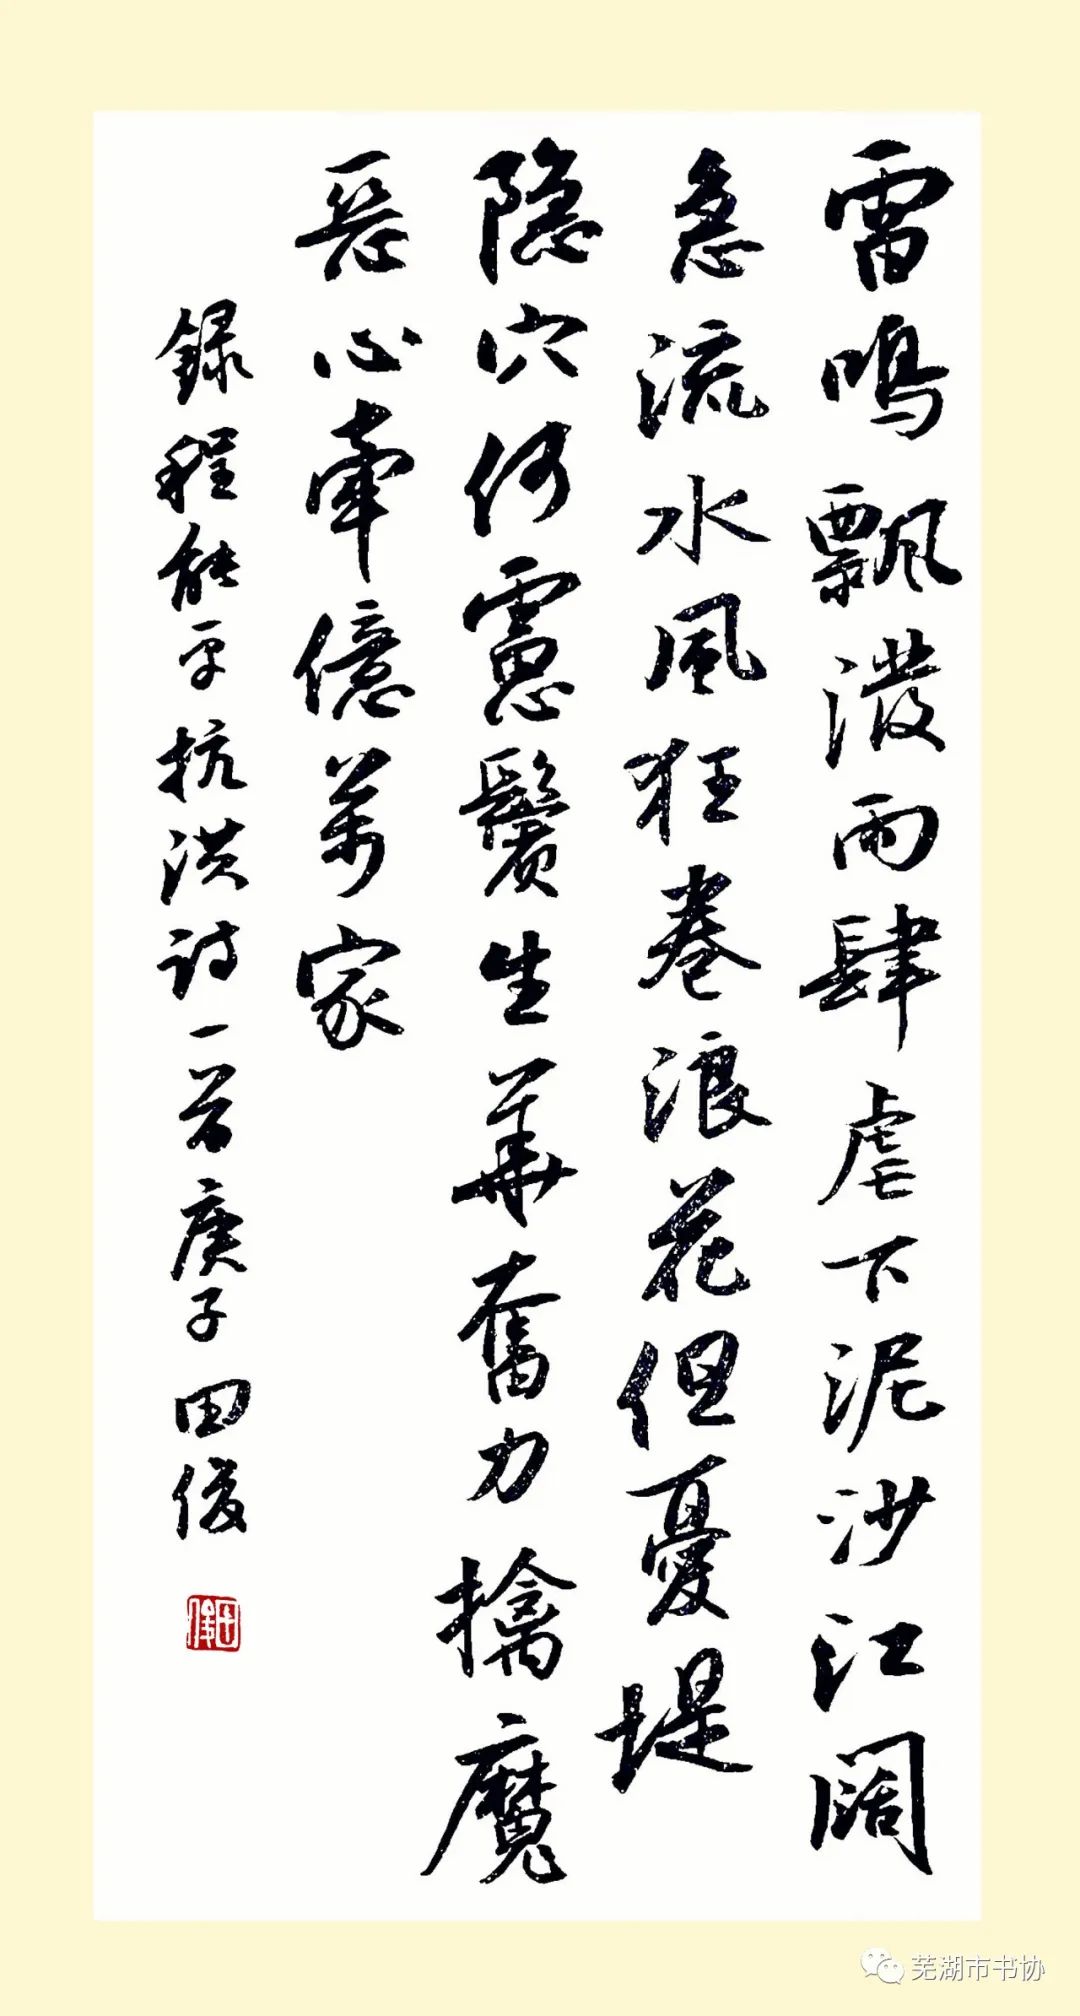 雷鸣飘潑雨肆虐下泥沙江阔
急流水風狂卷浪花但憂堤
隐穴何慮鬓生華奮力擒魔
惡心牽億萬家
録程能平抗洪诗一首庚子田俊
田俊
芜湖市书协